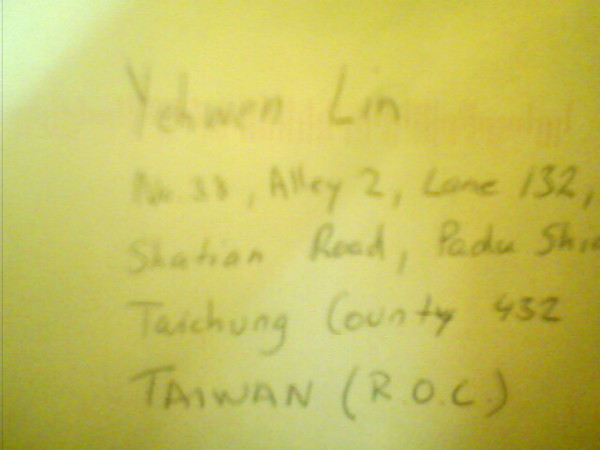 Yehwen Lin
No. 33, Alley 2, Lane 132,
Shatian Road, Padu
Taichung County 432
TAIWAN (R.O.C.)